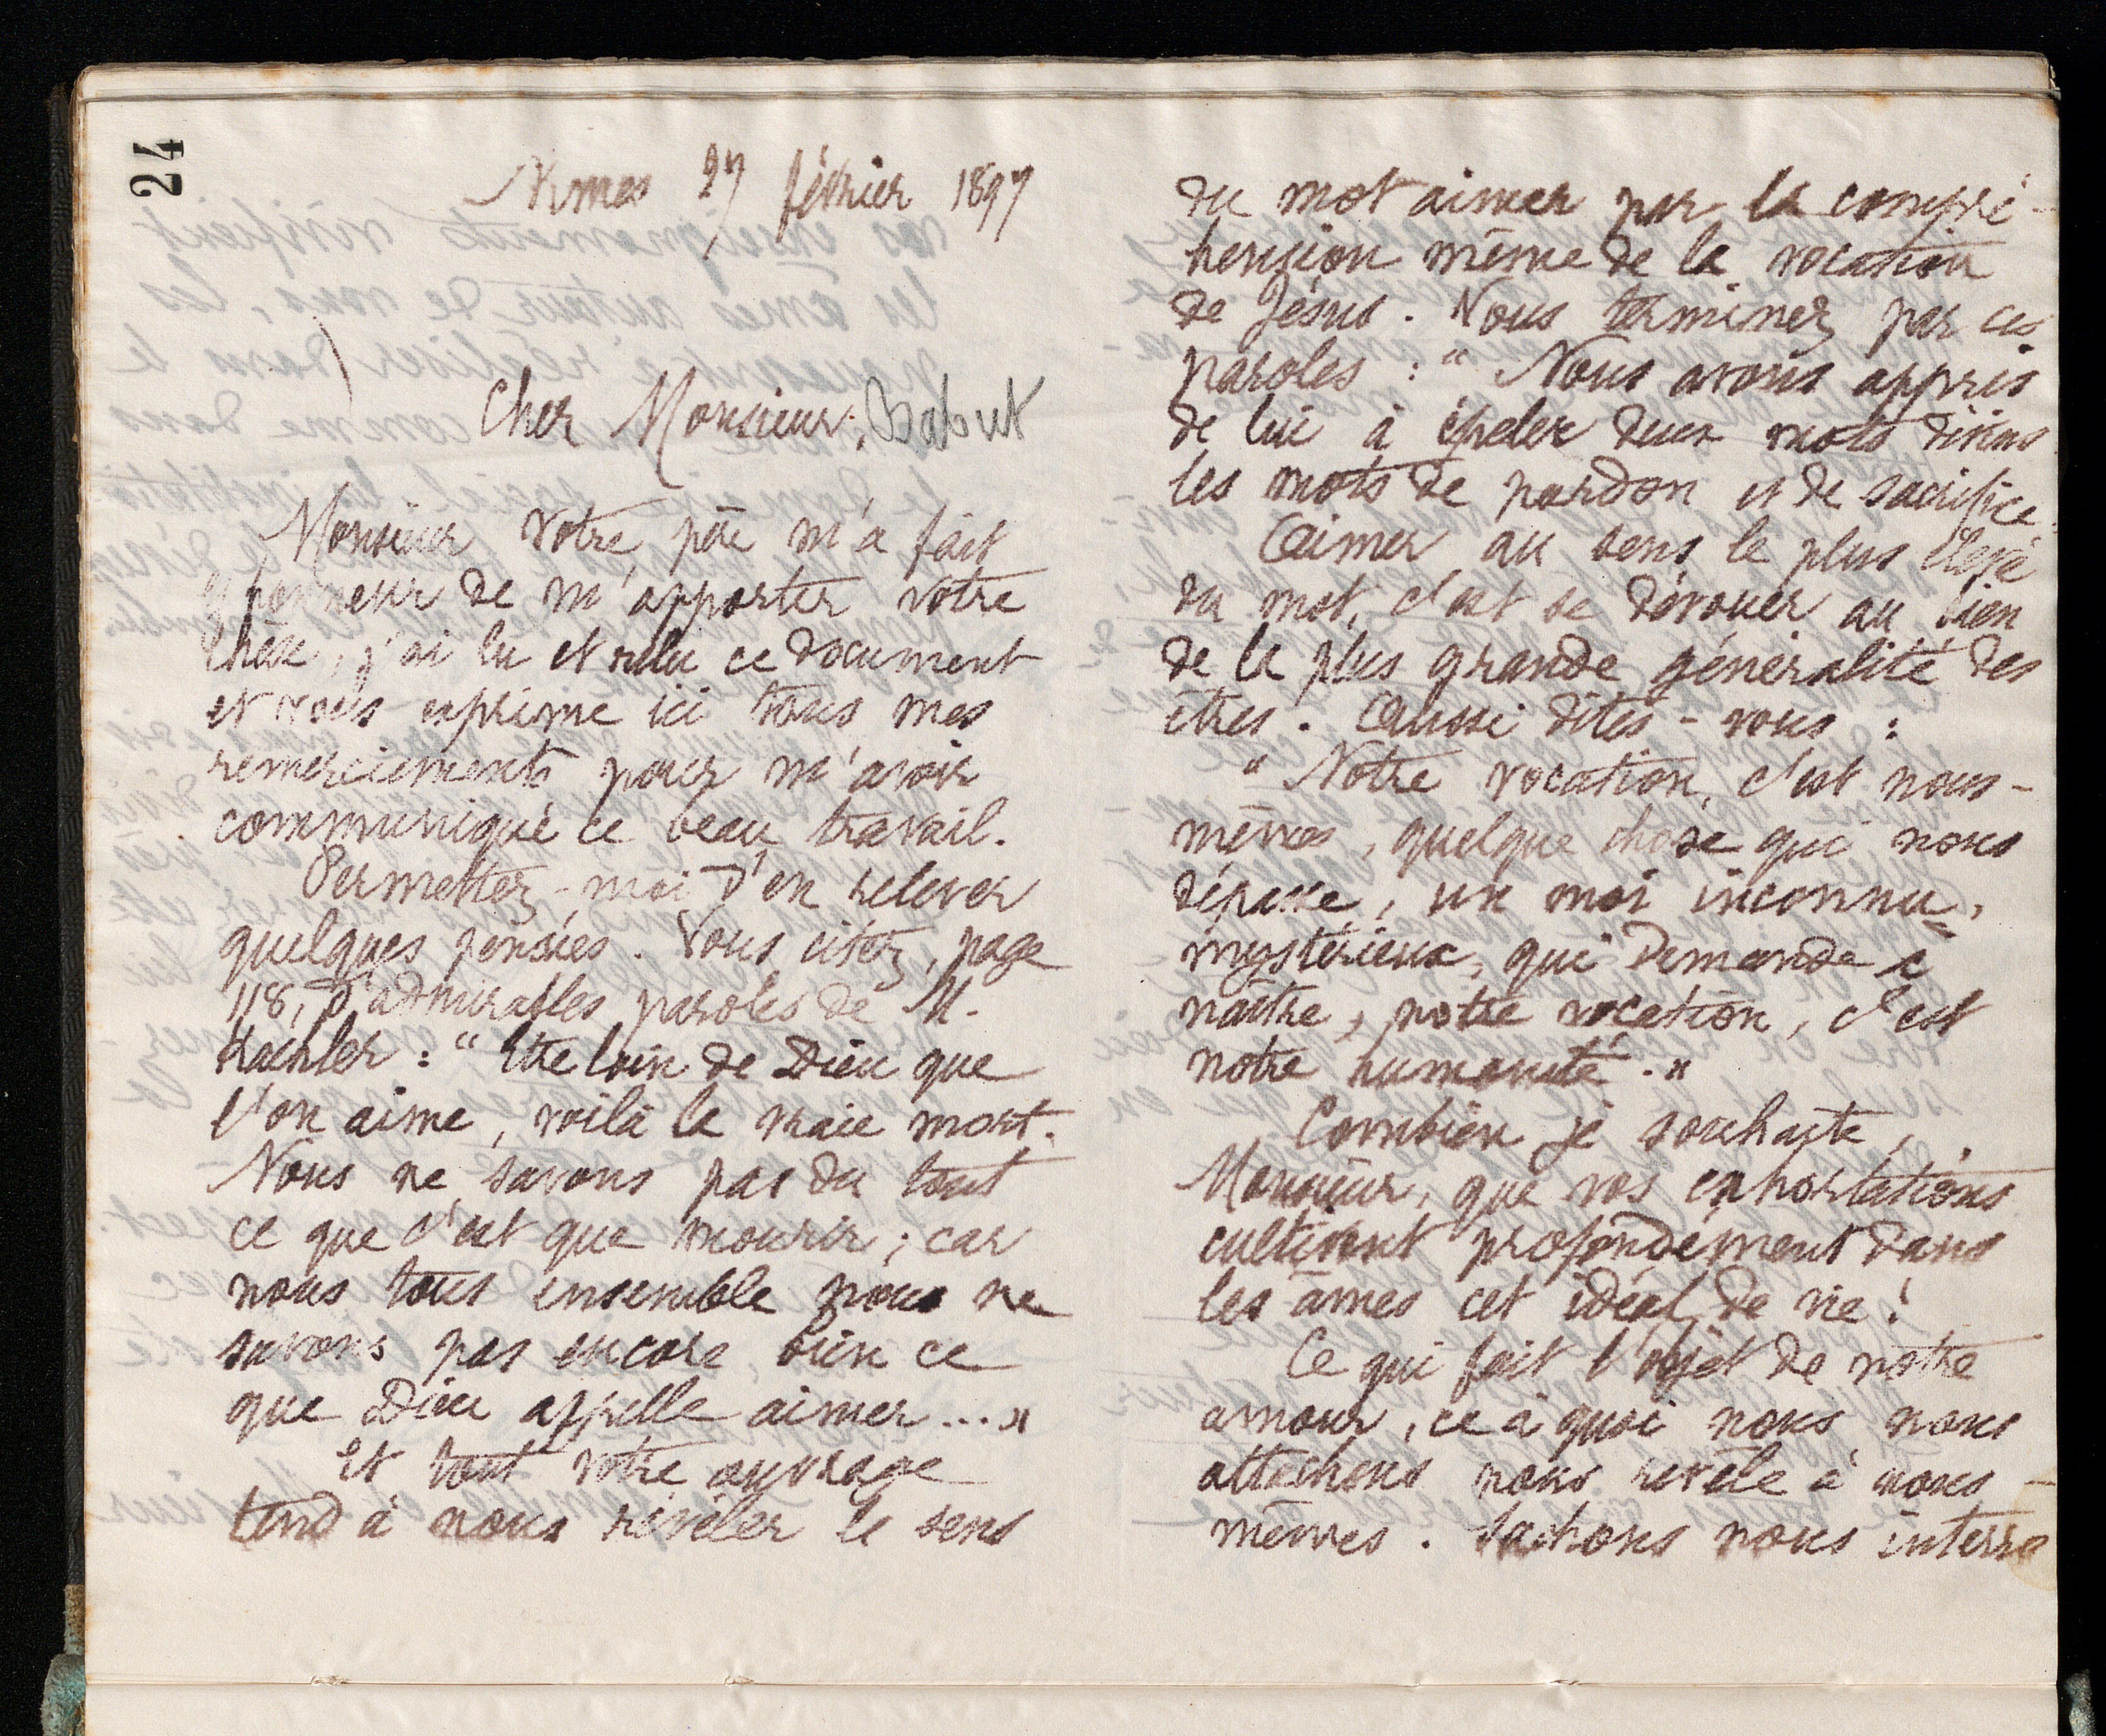 24
Nimes 27 février 1897
Cher Monsieur, Babut
Monsieur votre père m'a fait
l'honneur de m'apporter votre
thèse, j'ai lu et relu ce document
et vous exprime ici tous mes
remerciements pour m'avoir
communiqué ce beau travail.
Permettez-moi d'en relever
quelques pensées. Vous citez, page
118, d'admirables paroles de M.
Kaehler : " Etre loin de Dieu que
l'on aime, voilà la vraie mort.
Nous ne savons pas du tout
ce que c'est que mourir ; car
nous tous ensemble nous ne
savons pas encore bien ce
que Dieu appelle aimer ... "
Et tout votre ouvrage
tend à nous révéler le sens
du mot aimer par la compré-
hension même de la vocation
de Jésus. Vous terminez par ces
paroles : " Nous avons appris
de lui à épeler deux mots divins
les mots de pardon et de sacrifice.
Aimer au sens le plus élevé
du mot, c'est se dévouer au bien
de la plus grande généralité des
êtres. Aussi dites-vous :
" Notre vocation, c'est nous-
mêmes, quelque chose qui nous
dépasse, un moi inconnu,
mystérieux, qui demande à
naître, notre vocation, c'est
notre humanité. "
Combien je souhaite,
Monsieur, que vos exhortations
cultivent profondément dans
les âmes cet idéal de vie !
Ce qui fait l'objet de notre
amour, ce à quoi nous nous
attachons nous révèle à nous-
mêmes. Sachons nous interro